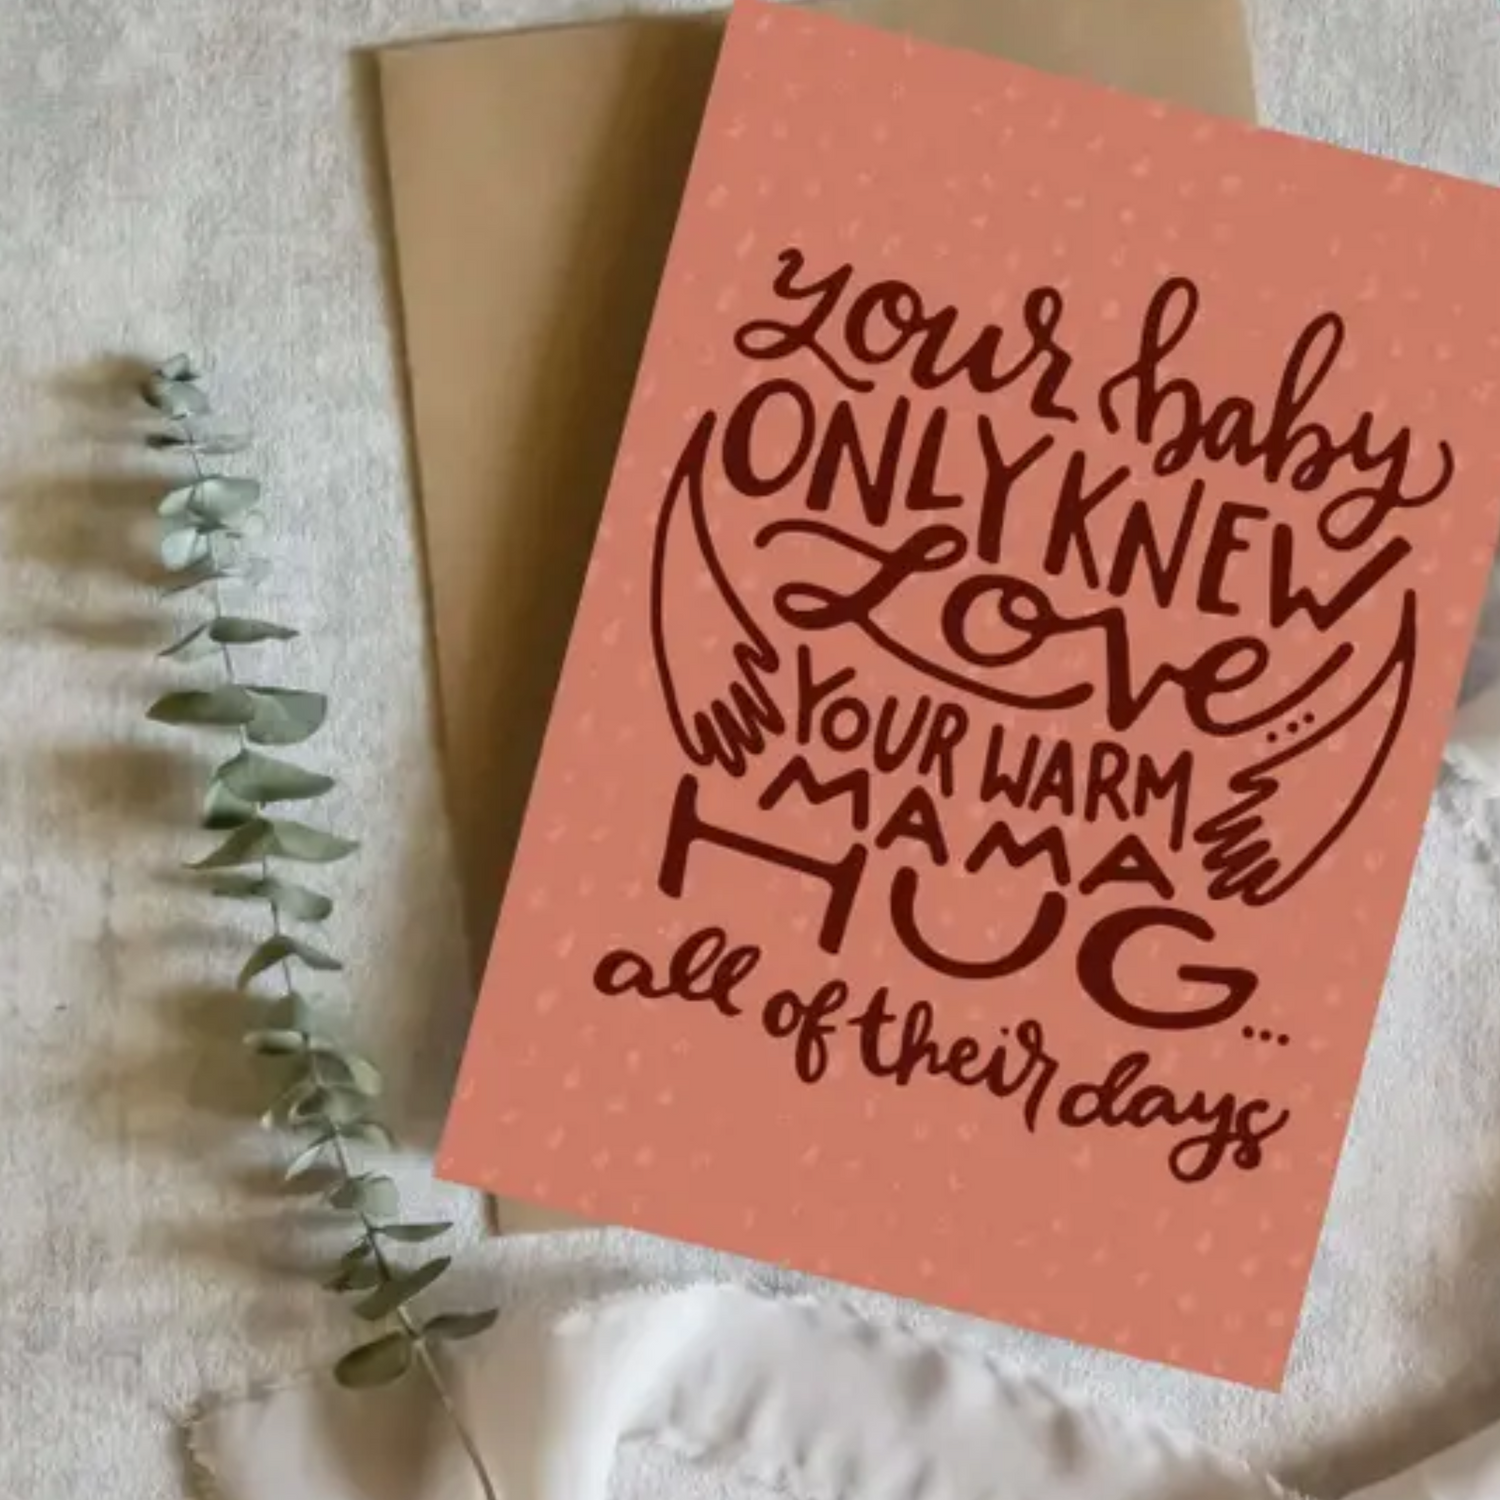 your baby
ONLY KNEW
Love...
YOUR WARM
MAMA
HUG...
all of their days